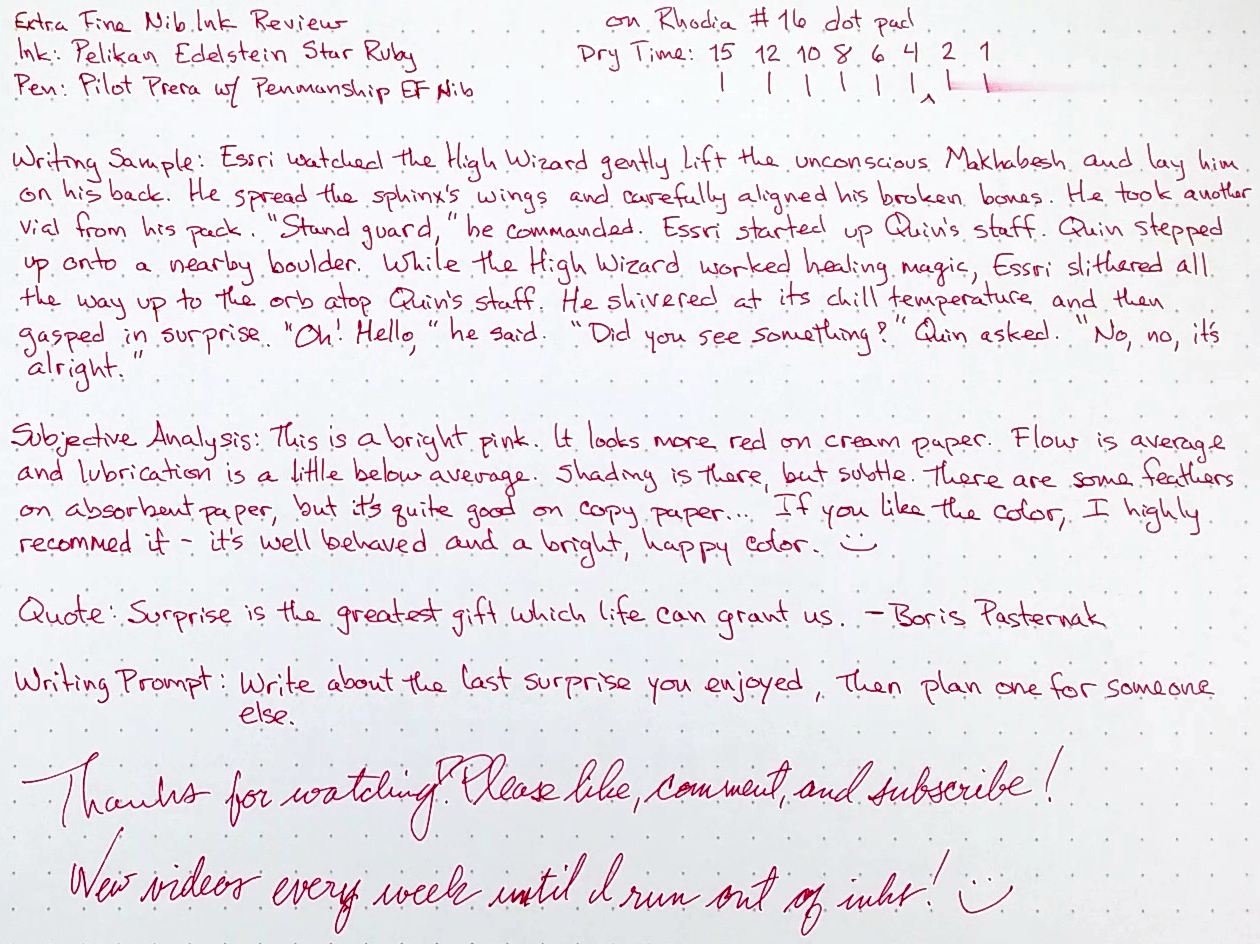 Extra Fine Nib Ink Review
on Rhodia #16 dot pad
Ink: Pelikan Edelstein Star Ruby
Dry Time: 15 12 10 8 6 4 2 1
Pen: Pilot Prera w/ Penmanship EF Nib
Writing Sample: Essri watched the High Wizard gently lift the unconscious Makhabesh and lay him
on his back. He spread the sphinx's wings and carefully aligned his broken bones. He took another
vial from his pack. "Stand guard," he commanded. Essri started up Quin's staff. Quin stepped
up onto a nearby boulder. While the High Wizard worked healing magic, Essri slithered all
the way up to the orb atop Quin's staff. He shivered at its chill temperature and then
gasped in surprise. "Oh! Hello," he said. "Did you see something?" Quin asked. "No, no, it's
alright."
Subjective Analysis: This is a bright pink. It looks more red on cream paper. Flow is average
and lubrication is a little below average. Shading is there, but subtle. There are some feathers
on absorbent paper, but it's quite good on copy paper... If you like the color, I highly
recommed it - it's well behaved and a bright, happy color. :)
Quote: Surprise is the greatest gift which life can grant us. - Boris Pasternak
Writing Prompt: Write about the last surprise you enjoyed, then plan one for someone
else.
Thanks for watching! Please like, comment, and subscribe!
New videos every week until I run out of inks! :)